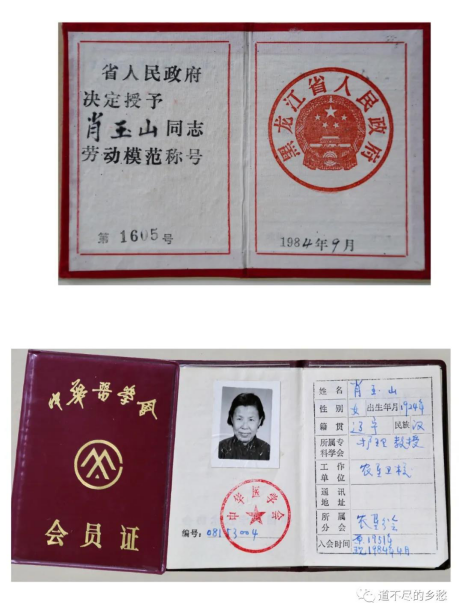 省人民政府
决定授予
肖玉山同志
劳动模范称号
第1605号
黑龙江省人民政府
1984年9月
会员证
中华医学会
编号:
姓名 肖玉山
性别 女 出生年月 1924年
籍贯 辽宁 民族 汉
所属专科学会 护理 教授
工作单位 农垦卫校
通讯地址
所属分会 农垦分会
入会时间 1984年4月
道不尽的乡愁